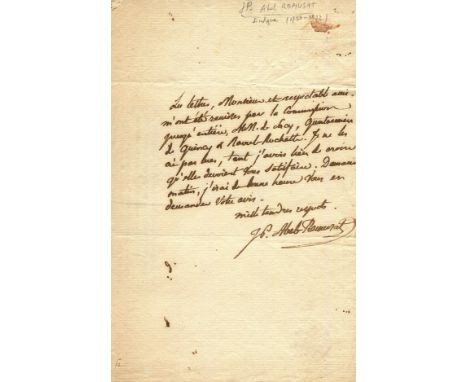 JP. Abel REMUSAT
Les lettres, Monsieur et respectable ami,
m'ont été remises par la Commission
presqu'entière, MM. de Sacy, Quatremère
de Quincy et Raoul Rochette. Je ne les
ai pas lues, tant j'avais lieu de croire
qu'elles devaient vous satisfaire. Demain
matin, j'irai de bonne heure vous en
demander votre avis.
mille tendres respects.
JP. Abel Remusat